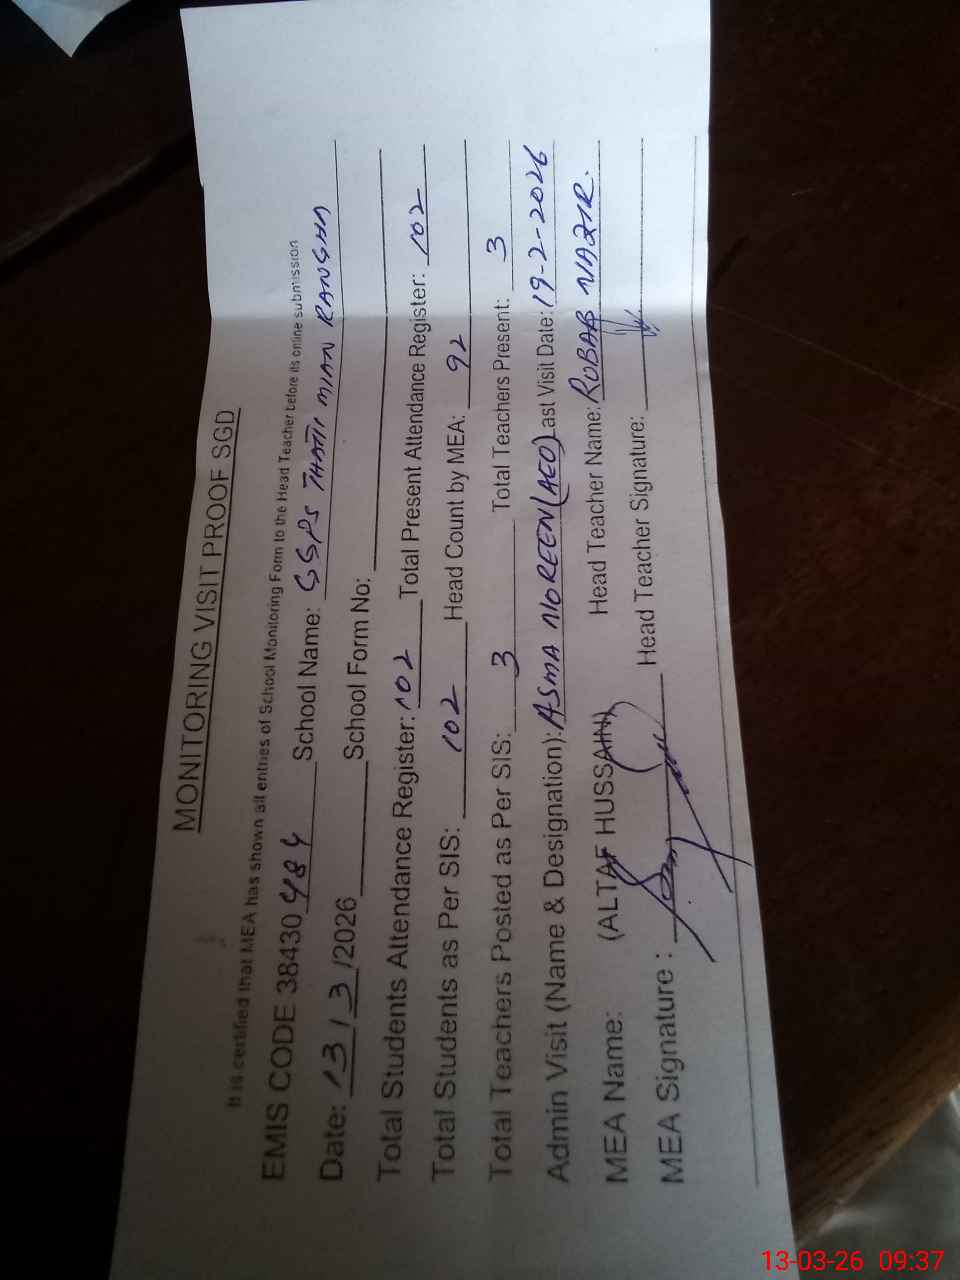 MONITORING VISIT PROOF SGD
It is certified that MEA has shown all entries of School Monitoring Form to the Head Teacher before its online submission
EMIS CODE 38430484 School Name: GGPS THATTI MIAN RANGHA
Date: 13/3/2026 School Form No:
Total Students Attendance Register: 102 Total Present Attendance Register: 102
Total Students as Per SIS: 102 Head Count by MEA: 92
Total Teachers Posted as Per SIS: 3 Total Teachers Present: 3
Admin Visit (Name & Designation): ASMA NOREEN (AEO) Last Visit Date: 19-2-2026
MEA Name: (ALTAF HUSSAIN) Head Teacher Name: RUBAB NAZIR.
MEA Signature : Head Teacher Signature:
13-03-26 09:37